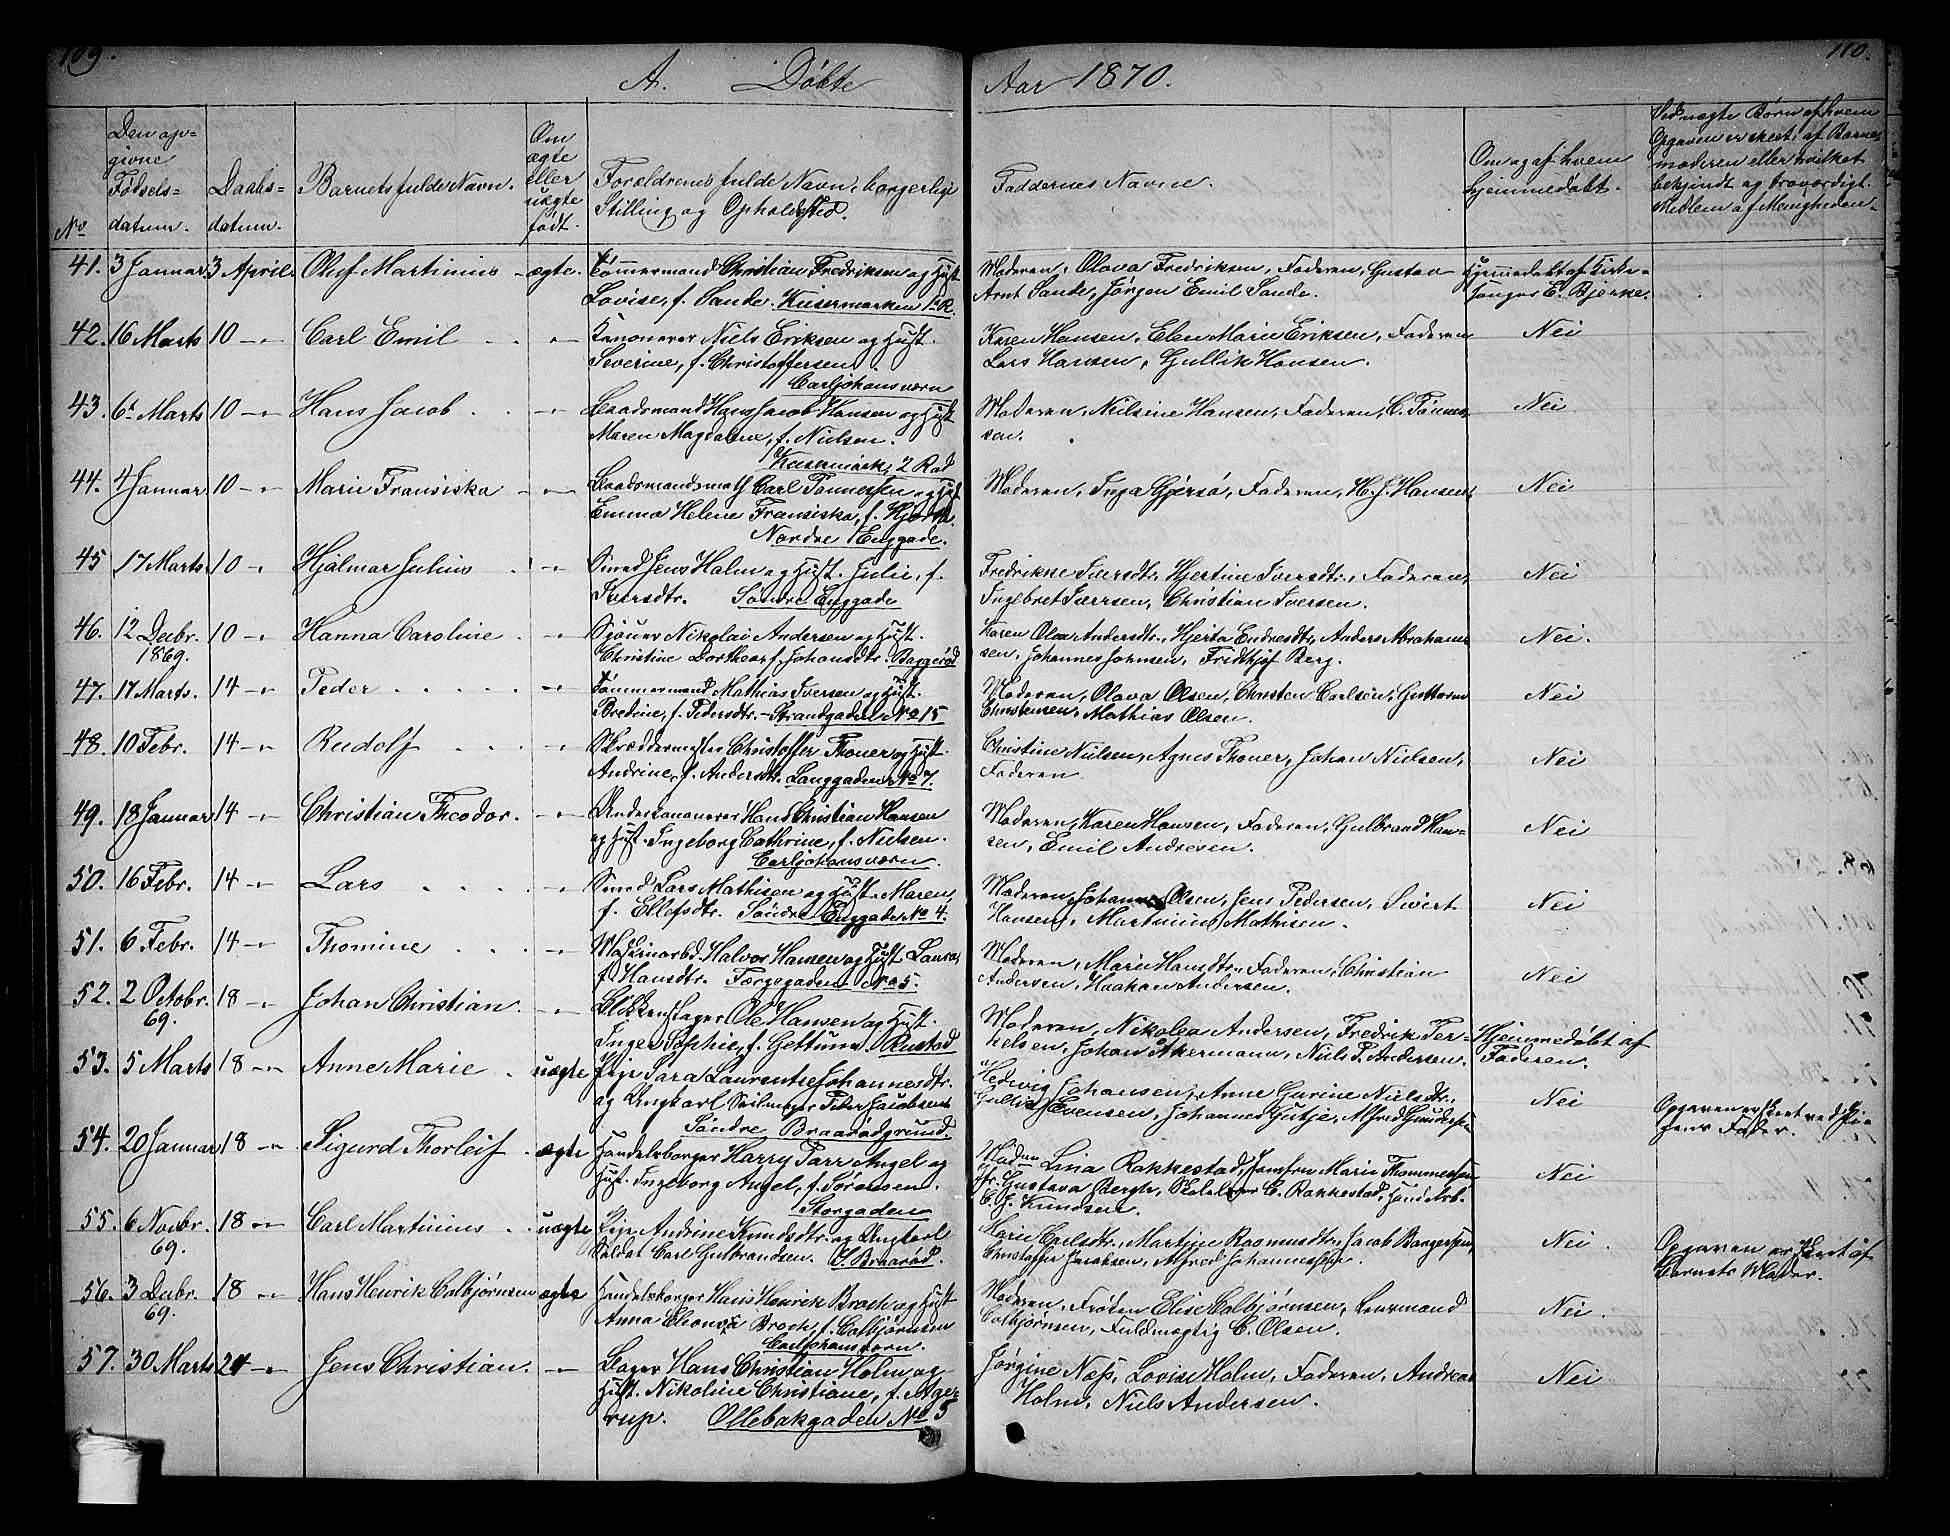 109.
A. Døbte
Aar 1870.
110.
No
Den op=
givne
Fødsels=
datum.
Daabs=
datum.
Barnets fulde Navn.
Om
ægte
eller
uægte
født.
Forældrenes fulde Navn, borgerlige
Stilling og Opholdsted.
Faddernes Navne.
Om og af hvem
hjemmedøbt.
Ved uægte Børn af hvem
Opgaven er skeet, af Barne=
moderen eller hvilket
bekjendt og troværdigt
Medlem af Menigheden.
41. 3 Januar 3 April. Oluf Martinius - ægte. Tømmermand Christian Fredriksen og Hust.
Lovise, f. Sande. Keisermarken 1 R.
Moderen, Olava Fredriksen, Faderen, Gustav
Arnt Sande, Jørgen Emil Sande.
Hjemmedøbt af Kirke=
sanger E. Bjerke.
42. 16 Marts 10 -"- Carl Emil . . -"- Kanoneer Niels Eriksen og Hust.
Severine, f. Christoffersen.
Carljohansværn
Karen Hansen, Elen Marie Eriksen, Faderen
Lars Hansen, Gullik Hansen.
Nei
43. 6te Marts 10 -"- Hans Jacob . . -"- Baadsmand Hans Jacob Hansen og Hust
Maren Magdalene, f. Nielsen.
Keisermark, 2 Rad
Moderen, Nilsine Hansen, Faderen, C. Tønnes=
sen.
Nei
44. 4 Januar 10 -"- Marie Fransiska - -"- Baadsmandsmath Carl Tønnessen og Hust
Emma Helene Fransiska, f.
Nordre Enggade.
Moderen, Inga Gjersø, Faderen, H. J. Hansen
Nei
45 17 Marts 10 -"- Hjalmar Julius . -"- Smed Jens Holm og Hust. Julie, f.
Iversdtr. Søndre Enggade
Fredrikke Iversdtr. Hjertine Iversdtr., Faderen,
Ingebret Iversen, Christian Iversen.
Nei
46. 12 Decbr. 10 -"- Hanna Caroline . -"- Sjøuer Nikolai Andersen og Hust.
1869.
Christine Dorthea, f. Johansdtr. Baggerød
Karen Olea Andersdtr., Hjerta Endresdtr., Anders Abraham=
sen, Johannes Johnsen, Fridthjof Berg.
Nei.
47. 17 Marts. 14 -"- Peder . . . . -"- Tømmermand Mathias Iversen og Hust.
Bredine, f. Pedersdtr. - Strandgaden No 15
Moderen, Olava Olsen, Christen Carlsen, Guttorm
Christensen, Mathias Olsen.
Nei
48. 10 Febr. 14 -"- Rudolf . . . -"- Skræddermester Christoffer Thoner og Hust.
Andrine, f. Andersdtr. Langgaden No 7.
Christine Nielsen, Agnes Thoner, Johan Nielsen,
Faderen
Nei
49. 18 Januar 14 -"- Christian Theodor. -"- Underkanoneer Hans Christian Hansen
og Hust. Ingeborg Cathrine, f. Nielsen.
Carljohansværn.
Moderen, Karen Hansen, Faderen, Gulbrand Han=
sen, Emil Andresen.
Nei
50. 16 Febr. 14 -"- Lars . . . . -"- Smed Lars Mathisen og Hust. Maren,
f. Ellefsdtr. Søndre Enggade No 4.
Moderen, Johanne Olsen, Jens Pedersen, Sivert
Hansen, Martinius Mathisen.
Nei
51. 6 Febr. 14 -"- Thomine . . . -"- Maskinarbd. Halvor Hansen og Hust. Laura,
f. Hansdtr. Færgegaden No 5.
Moderen, Marie Hansdtr., Faderen, Christian
Andersen, Haakon Andersen.
Nei
52. 2 Octobr. 18 -"- Johan Christian. -"- Blikkenslager Ole Hansen og Hust.
69.
Inger Sophie, f. Gettum. Rustad
Moderen, Nikolea Andersen, Fredrik Ter=
kelsen, Johan Åkermann, Niels P. Andersen.
Hjemmedøbt af
Faderen.
53. 5 Marts 18 -"- Anne Marie . uægte Pige Sara Laurentse Johannesdtr.
og Ungkarl Seilmager Peder Jacobsen
Søndre Braarødgrund.
Hedvig Johansen, Anne Gurine Nielsdtr.,
Evensen, Johannes Gutje, Alfred Gundersen
Nei
Opgaven er skeet ved Pi=
gens Fader.
54. 20 Januar 18 -"- Sigurd Thorleif . ægte Handelsborger Harry Parr Angel og
Hust. Ingeborg Angel, f. Sørensen.
Storgaden
Madam Lina Rakkestad, Jomfru Marie Thommessen
Fr. Gustava Bergh, Skolelærer C. Rakkestad,
C. J. Knudsen.
Nei
55. 6 Novbr. 18 -"- Carl Martinius . . uægte Pige Andrine Knudsdtr. og Ungkarl
69.
Soldat Carl Gulbrandsen. V. Braarød.
Marie Carlsdtr., Martine Rasmusdtr., Jacob Borgersen,
Christoffer Jacobsen, Alfred Johannessen.
Nei .
Opgaven er skeet af
Barnets Moder.
56. 3 Decbr. 18 -"- Hans Henrik Colbjørnsen ægte Handelsborger Hans Henrik Broch og Hust
69.
Anna Elionora Broch, f. Colbjørnsen
Carljohansværn.
Moderen, Frøken Elise Colbjørnsen, Lensmand
Colbjørnsen, Fuldmægtig C. Olsen.
Nei .
57. 30. Marts 24 -"- Jens Christian. -"- Bager Hans Christian Holm og
Hust. Nikoline Christiane, f. Ager=
rup. Ollebakgaden No 5
Jørgine Næss, Lovise Holm, Faderen, Andreas
Holm, Niels Andersen.
Nei